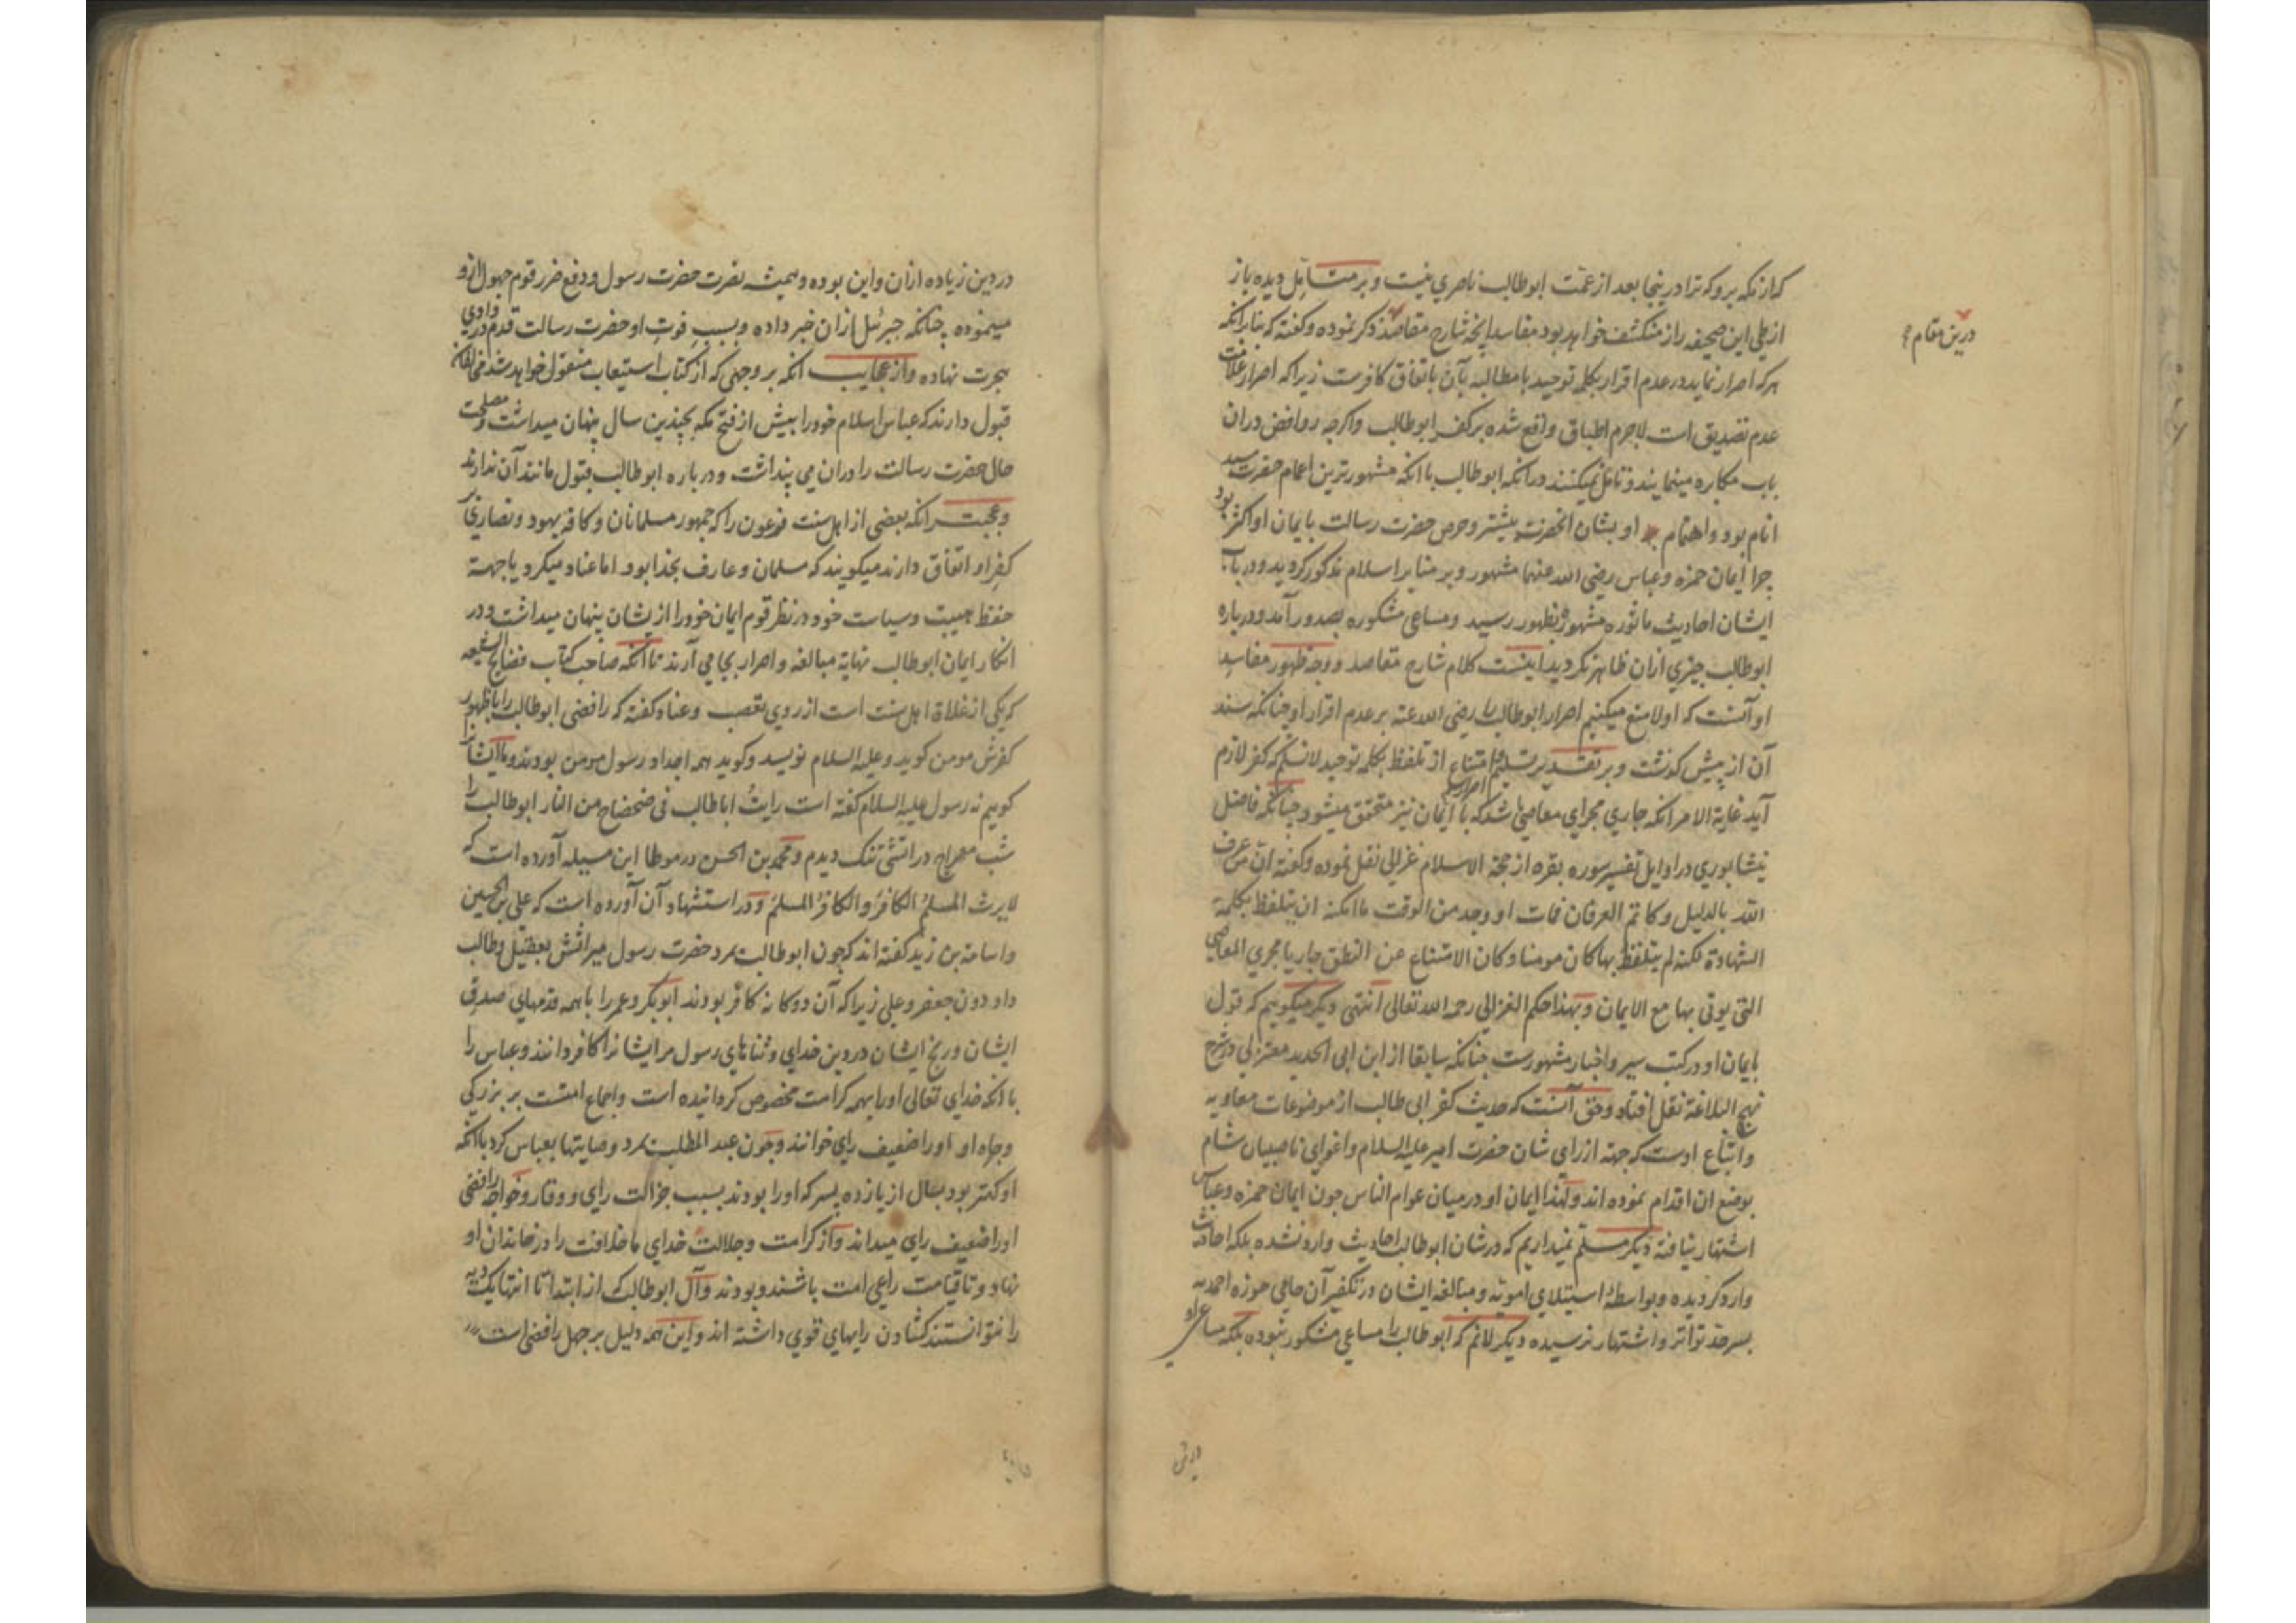 که از مکه برو که ترا درینجا بعد از عمّت ابوطالب ناصری نیست و بر متأمل دیده باز
از طی این صحیفه راز منکشف خواهد بود مفاسد آنچه شارح مقاصد ذکر نموده و گفته که بنا بر آنکه
درین مقام
هر که اصرار نماید در عدم اقرار بکلمه توحید با مطالبه بآن باتفاق کافرست زیرا که اصرار علامت
عدم تصدیق است لاجرم اطباق واقع شده بر کفر ابوطالب و اگرچه روافض دران
باب مکابره مینمایند و تامل نمیکنند در آنکه ابوطالب با آنکه مشهورترین اعمام حضرت سید
انام بود و اهتمام او بشان آنحضرت بیشتر و حرص حضرت رسالت بایمان او اکثر بود
چرا ایمان حمزه و عباس رضی الله عنهما مشهور و بر منابر اسلام مذکور گردید و در باب
ایشان احادیث ماثوره مشهوره بظهور رسید و مساعی مشکوره بصدور آمد و درباره
ابوطالب چیزی ازان ظاهر نگردید اینست کلام شارح مقاصد و وجه ظهور مفاسد
او آنست که اولا منع میکنیم اصرار ابوطالب را رضی الله عنه بر عدم اقرار او چنانکه سند
آن از پیش گذشت و بر تقدیر تسلیم امتناع از تلفظ بکلمه توحید لانسلم که کفر لازم
اصرار
آید غایة الامر آنکه جاری مجرای معاصی باشد که با ایمان نیز متحقق میشود چنانکه فاضل
نیشابوری در اوایل تفسیر سوره بقره از حجة الاسلام غزالی نقل نموده و گفته ان من عرف
الله بالدلیل و کما تم العرفان فمات او وجد من الوقت ما امکنه ان یتلفظ بکلمة
الشهادة لکنه لم یتلفظ بها کان مومنا و کان الامتناع عن النطق جاریا مجری المعاصی
التی یوتی بها مع الایمان و بهذا حکم الغزالی رحمه الله تعالی انتهی و دیگر میگوییم که قول
بایمان او در کتب سیر و اخبار مشهورست چنانکه سابقا از ابن ابی الحدید معتزلی در شرح
نهج البلاغة نقل افتاد و حق آنست که حدیث کفر ابی طالب از موضوعات معاویه
و اتباع اوست که جهة ازرای شان حضرت امیر علیه السلام و اغوای ناصبیان شام
بوضع ان اقدام نموده اند و لهذا ایمان او درمیان عوام الناس چون ایمان حمزه و عباس
اشتهار نیافته دیگر مسلم نمیداریم که در شان ابوطالب احادیث وارد نشده بلکه احادیث
وارد گردیده و بواسطه استیلای امویه و مبالغه ایشان در تکفیر آن حامی حوزه احمدیه
بسرحد تواتر و اشتهار نرسیده دیگر لانم که ابوطالب را مساعی مشکور نبوده بلکه مساعی او
در دین زیاده ازان و این بوده و همیشه نصرت حضرت رسول و دفع ضرر قوم جهول ازو
مینموده چنانکه جبرئیل ازان خبر داده و بسبب فوت او حضرت رسالت قدم در وادی
هجرت نهاده و از عجایب آنکه بر وجهی که از کتاب استیعاب منقول خواهد شد مخالفان
قبول دارند که عباس اسلام خود را بیش از فتح مکه بچندین سال پنهان میداشت و مصلحت
حال حضرت رسالت را دران می پنداشت و درباره ابوطالب قبول مانند آن ندارند
و عجبتر آنکه بعضی از اهل سنت فرعون را که جمهور مسلمانان و کافه یهود و نصاری بر
کفر او اتفاق دارند میگویند که مسلمان و عارف بخدا بود اما عناد میکرد یا جهة
حفظ هیبت و سیاست خود در نظر قوم ایمان خود را از یشان پنهان میداشت و در
انکار ایمان ابوطالب نهایة مبالغه و اصرار بجا می آرند تا آنکه صاحب کتاب فضایح الشیعه
که یکی از غلاة اهل سنت است از روی تعصب و عناد گفته که رافضی ابوطالب را با ظهور
کفرش مومن گوید و علیه السلام نویسد و گوید همه اجداد رسول مومن بودند و ما ایشانرا
گوییم نه رسول علیه السلام گفته است رایتُ اباطالب فی ضحضاح من النار ابوطالب را
شب معراج در آتشی تنک دیدم و محمد بن الحسن در موطا این مسیله آورده است که
لا یرث المسلمُ الکافرَ و الکافرُ المسلمَ و در استشهاد آن آورده است که علی بن الحسین
و اسامة بن زید گفته اند که چون ابوطالب بمرد حضرت رسول میراثش بعقیل و طالب
داد دون جعفر و علی زیرا که آن دوگانه کافر بودند ابوبکر و عمر را با همه قدمهای صدق
ایشان و رنج ایشان در دین خدای و ثناهای رسول مر ایشانرا کافر دانند و عباس را
با آنکه خدای تعالی او را بهمه کرامت مخصوص گردانیده است و اجماع امتست بر بزرگی
و جاه او او را ضعیف رای خوانند و چون عبد المطلب بمرد وصایتها بعباس کرد با آنکه
او کمتر بود بسال از یازده پسر که او را بودند بسبب جزالت رای و وقار و خواجه رافضی
او را ضعیف رای میداند و از کرامت و جلالت خدای ما خلافت را در خاندان او
نهاد و تا قیامت راعی امت باشند و بودند و آل ابوطالب که از ابتدا تا انتها یک دیه
را نتوانستند گشادن رایهای قوی داشته اند و این همه دلیل بر جهل رافضی است
در دین